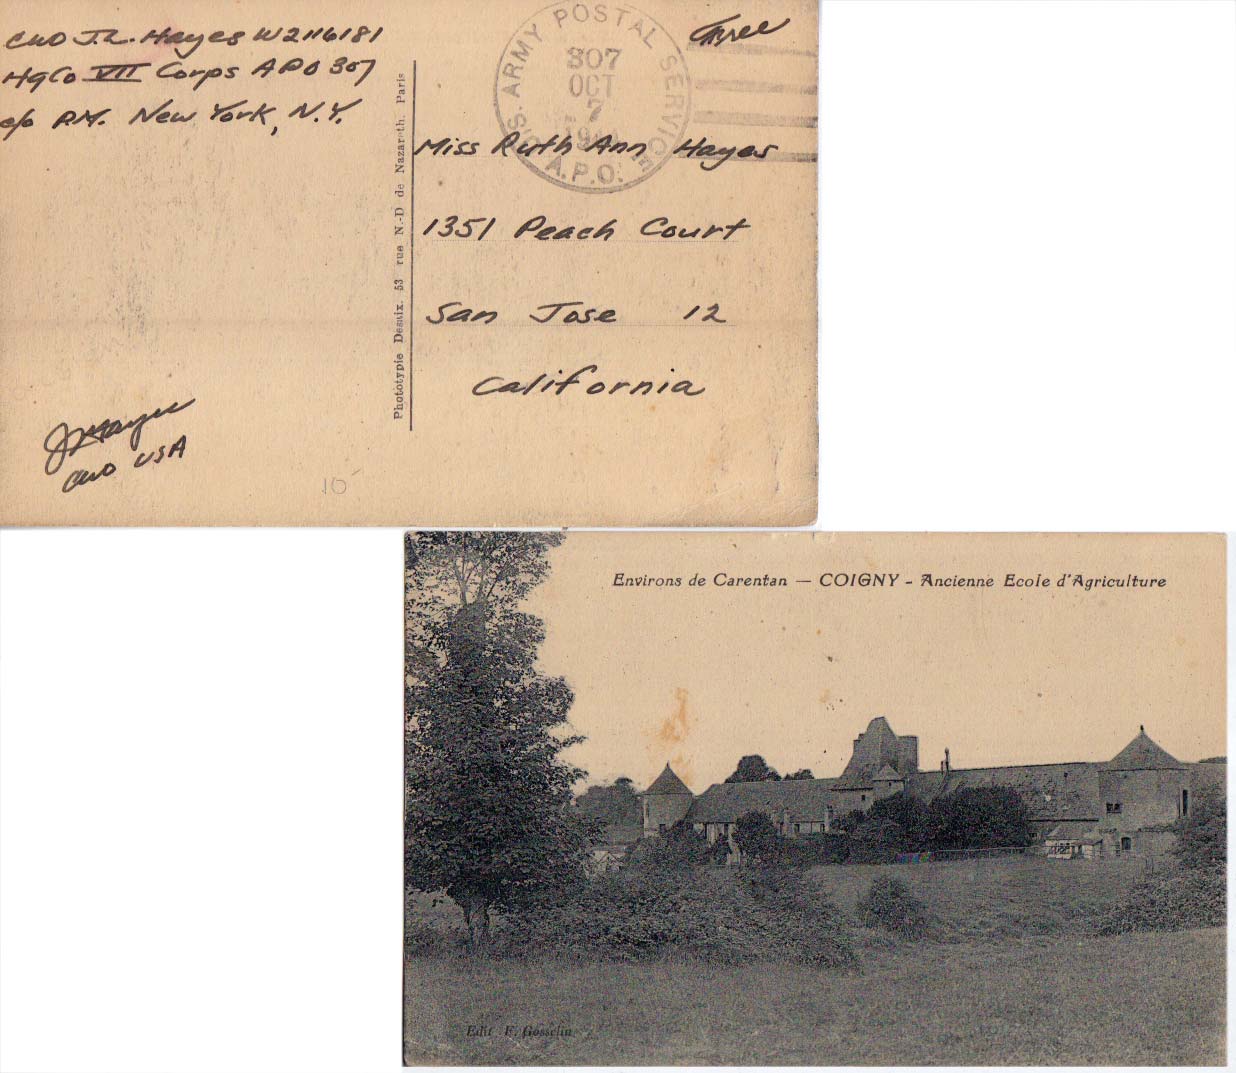 CWO J.L. Hayes W2116181
HqCo VII Corps APO 307
c/o P.M. New York, N.Y.
Free
U.S. ARMY POSTAL SERVICE
307
OCT
7
A.P.O.
Miss Ruth Ann Hayes
1351 Peach Court
San Jose 12
California
Phototypie Desaix. 53 rue N.-D de Nazareth. Paris
J Hayes
CWO USA
10
Environs de Carentan — COIGNY - Ancienne Ecole d'Agriculture
Edit F. Gosselin